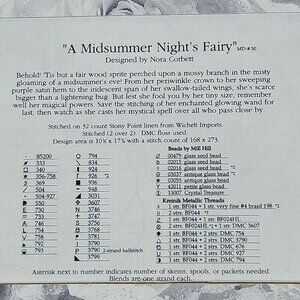 "A Midsummer Night's Fairy" MD#30
Designed by Nora Corbett
Behold! 'Tis but a fair wood sprite perched upon a mossy branch in the misty
gloaming of a midsummer's eve! From her periwinkle crown to her sweeping
purple satin hem to the iridescent span of her swallow-tailed wings, she's scarce
bigger than a lightening bug. But lest she fool you by her tiny size, remember
well her magical powers. Save the stitching of her enchanted glowing wand for
last, then watch as she casts her mystical spell over all who pass close by.
Stitched on 32 count Stony Point linen from Wichelt Imports.
Stitched (2 over 2). DMC floss used.
Design area is 10½ x 17⅛ with a stitch count of 168 x 273.
B5200
333
340
356-758
369
504
504-927
550
730
733
734
754
758
792
793
794
834
924
926 *2
3031
948
3607
3746
3747
3756
3768
3781
3790
3790 2-strand halfstitch
3799
Beads by Mill Hill
00479 glass seed bead
02015 glass seed bead
02016 glass seed bead *2
03037 antique glass bead *2
03055 antique glass bead
42011 petite glass bead
13007 Crystal Treasure
Kreinik Metallic Threads
1 str. BF044 + 1 str. very fine #4 braid 198 *2
2 str. BF044 *3
1 str. BF044 + 1 str. BF024HL
2 str. BF024HL *2 + 1 str. DMC 3607
1 str. BF044 + 2 str. DMC 754
1 str. BF044 + 2 str. DMC 340
1 str. BF044 + 2 str. DMC 676
1 str. BF044 + 2 str. DMC 3746
1 str. BF044 + 2 str. DMC 734
1 str. BF044 + 2 str. DMC 794
Asterisk next to number indicates number of skeins, spools, or packets needed.
Blends are one strand each.